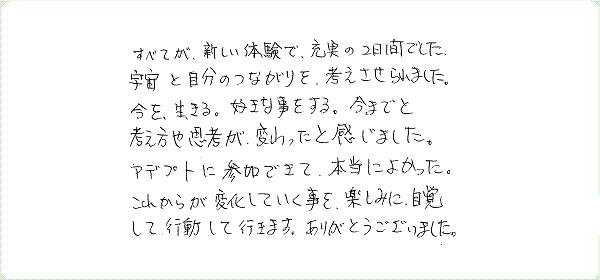 すべてが、新しい体験で、充実の2日間でした。
宇宙と自分のつながりを、考えさせられました。
今を、生きる。好きな事をする。今までと
考え方や思考が、変わったと感じました。
アデプトに参加できて、本当によかった。
これからが変化していく事を、楽しみに、自覚
して行動して行きます。ありがとうございました。